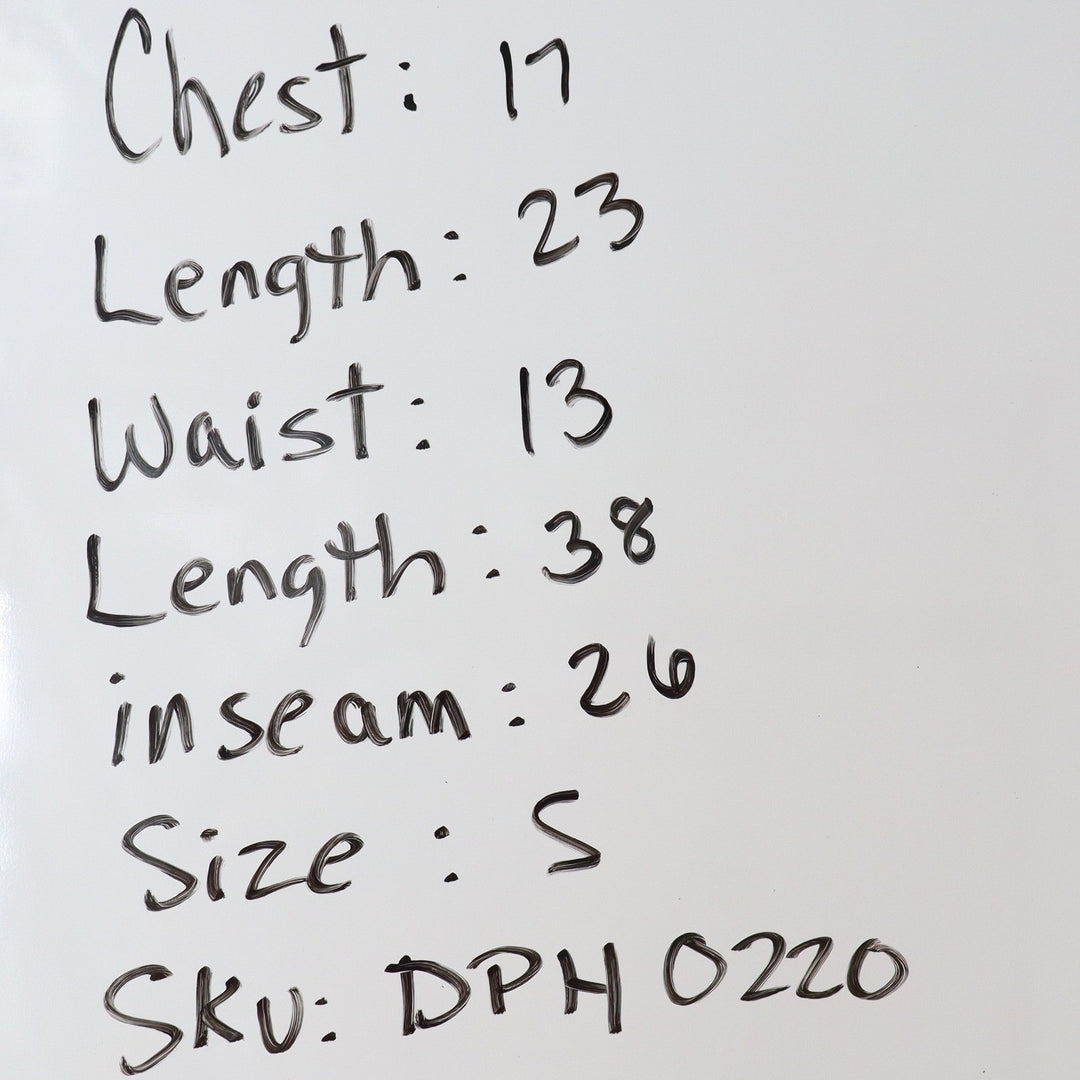 Chest: 17
Length: 23
Waist: 13
Length: 38
inseam: 26
Size: S
SKU: DPH 0220